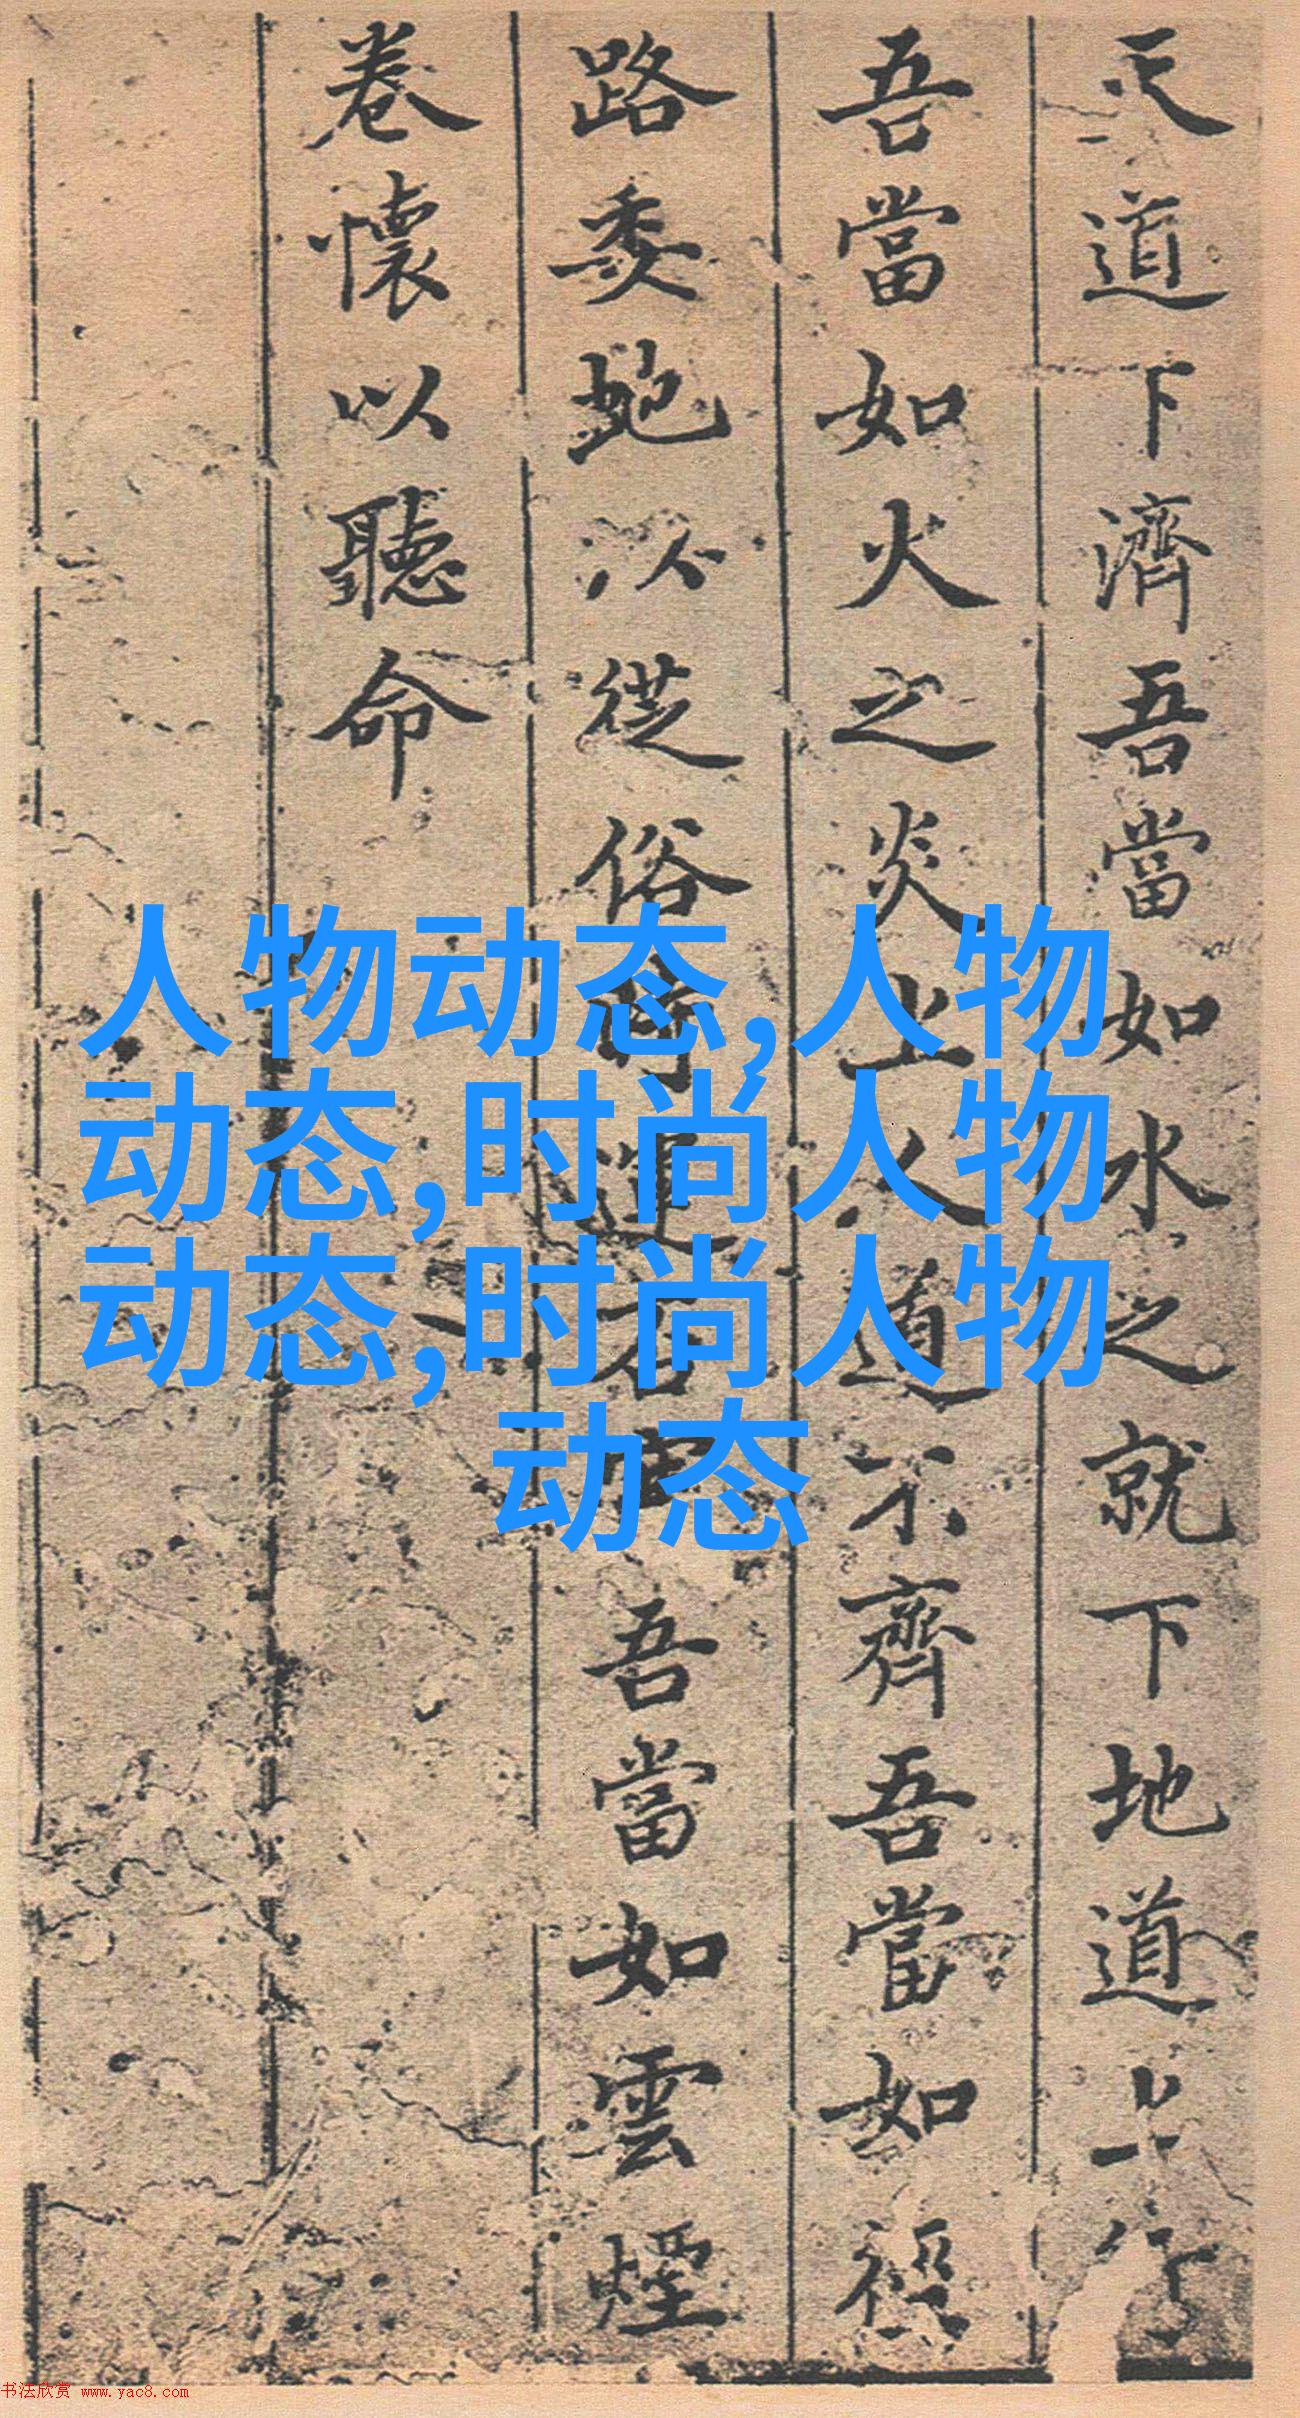 天道下濟吾當如水之就下地道上行
吾當如火之炎上人道不齊吾當如裎
路委蛇以從俗時運若申吾當如雲煙
卷懷以聽命
人物动态,人物
动态,时尚人物
动态,时尚人物
动态
书法欣赏 www.yac8.com